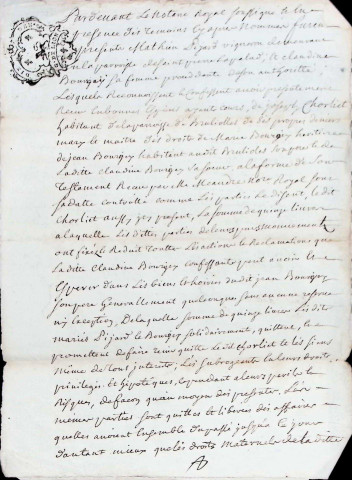 Pardevant Le Notaire Royal soussigné et les
presence des temoins cy apres Nommés furent
presents Mathieu Pijard vigneron demeurant
en la parroisse de saint pierre la palud, et claudine
Bourgey sa femme procedante de son authorité
Lesquels Reconnoissent et Confessent avoir presentement
Receu en bonnes Especes ayant cours, de Joseph Chorliet
habitant de la parroisse de Brulioles de ses propres deniers
mary et maitre des droits de Maria Bourgey heritiere
de jean Bourgey habitant audit Brulioles
Ladite claudine Bourgey sa soeur, a la forme de son
Testament Receu par Me Meaudre Notre Royal sous
sa datte controllé comme les parties le disent, ledit
Chorliet aussy present, La somme de quinze livres
a laquelle Lesdittes parties
ont fixé et Reduit touttes les actions et Reclamations que
Ladite Claudine Bourgey Confessante peut avoir et
Esperer dans les biens et hoirie dudit jean Bourgey
son pere Generallement quelconques sans aucune reserve
ny exception, De laquelle somme de quinze livres Lesdits
mariés Pijard et Bourgey solidairement, quittent, et
promettent de faire tenir quitte Ledit Chorliet et les siens
même de tout interets; Les subrogeants a leurs droits,
privileges et hipoteques, cependant a leurs perils et
Risques, de façon qu'au moyen des presentes Les
mêmes parties sont quittes et libres des affaires
quelles avoient Ensemble du passé jusques a ce jour
d'autant mieux que les droits maternels de Ladite